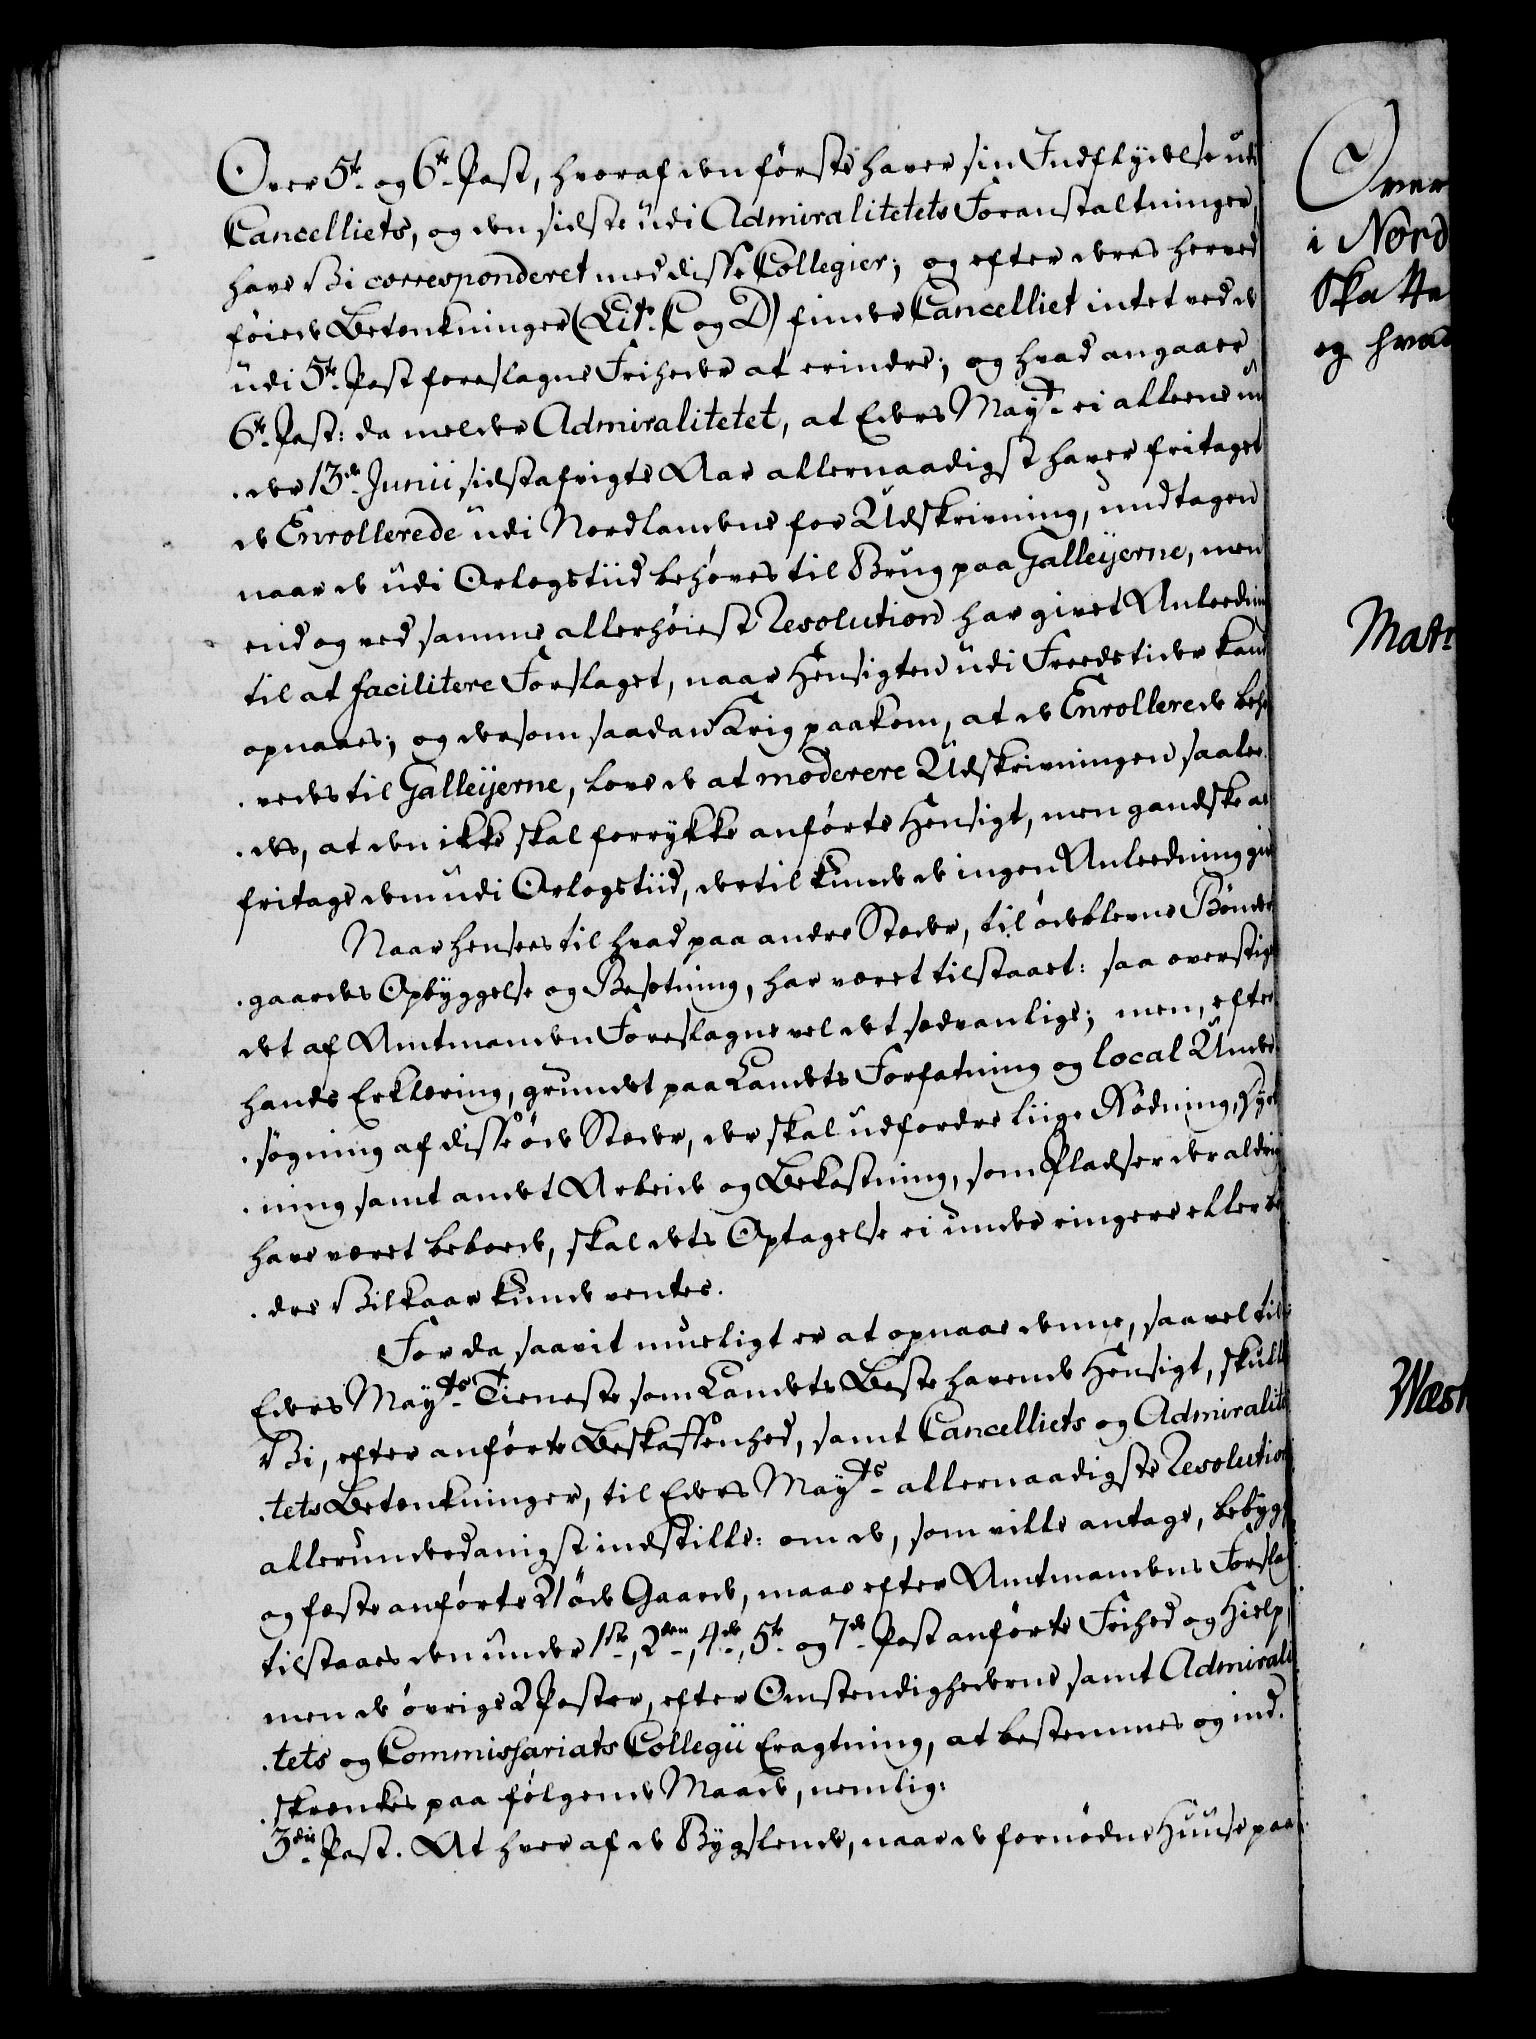 Over 5te og 6te Post, hvoraf den første haver sin Indflydelse udi
Cancelliets, og den sidste udi Admiralitetets Foranstaltninger,
have Vi corresponderet med disse Collegier; og efter deres herved
føiede Betenkninger (Litr. C og D) finder Cancelliet intet ved de
udi 5te Post foreslagne Friheder at erindre; og hvad angaaer
6te Post: da melder Admiralitetet, at Eders Mayt. ei alleene un
der 13de Junii sidstafvigte Aar allernaadigst haver fritaget
de Enrollerede udi Nordlandene for Udskrivning, undtagen
naar de udi Orlogstiid behøves til Brug paa Galleijerne, men
end og ved samme allerhøiest Resolution har givet Anleedni
til at facilitere Forslaget, naar Hensigten udi Freedstider kand
opnaaes; og dersom saadan Krig paakom, at de Enrollerede behø
vedes til Galleijerne, love de at moderere Udskrivningen saale
des, at den ikke skal forrykke anførte Hensigt, men gandske at
fritage dem udi Orlogstiid, dertil kunde de ingen Anleedning give
Naar hensees til hvad paa andre Steder, til ødeblevne Bønder
gaardes Opbyggelse og Besetning, har været tilstaaet: saa overstige
det af Amtmanden Foreslagne vel det sædvanlige; men, efter
hands Erklering, grundet paa Landets Forfatning og local Under
søgning af disse øde Steder, der skal udfordre liige Rødning, Ryd
ning samt andet Arbeide og Bekostning, som Pladser der aldrig
have været beboede, skal dets Optagelse ei under ringere eller
dre Vilkaar kunde ventes.
For da saavit mueligt er at opnaae denne, saavel til
Eders Mayts. Tieneste som Landets Beste havende Hensigt, skulle
Vi, efter anførte Beskaffenhed, samt Cancelliets og Admiralite
tets Betenkninger, til Eders Mayts. allernaadigste Resolution
allerunderdanigst indstille: om de, som ville antage, bebygge
og feste anførte 21 øde Gaarde, maae efter Amtmandens Forslag
tilstaaes den under 1ste, 2den, 4de, 5te og 7de Post anførte Frihed og Hielp,
men de øvrige 2 Poster, efter Omstendighederne samt Admirali
tets og Commissariats Collegii Eragtning, at bestemmes og ind
skrænkes paa følgende Maade, nemlig:
3die Post. At hver af de Bygslende, naar de fornødne Huuse paa
Over
i Nord
Skatte
og hvad
Matr
Wæst